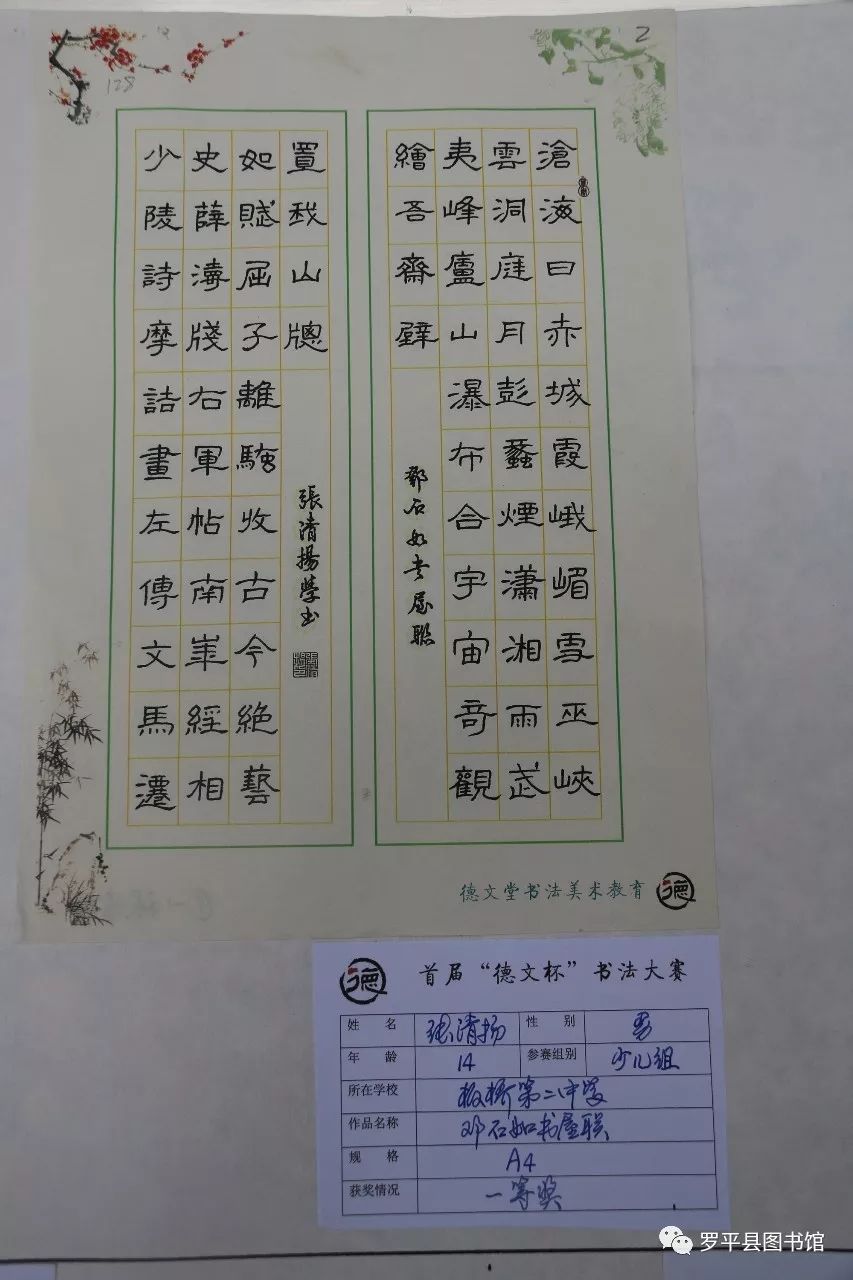 2
128
滄海日赤城霞峨嵋雪巫峽
雲洞庭月彭蠡煙瀟湘雨武
夷峰廬山瀑布合宇宙奇觀
繪吾齋壁
鄧石如書屋聯
少陵詩摩詰畫左傳文馬遷
史薛濤牋右軍帖南華經相
如賦屈子離騷收古今絶藝
置我山牕
張清揚學書
德文堂书法美术教育
德
德
首届“德文杯”书法大赛
姓名 张清扬 性别 男
年龄 14 参赛组别 少儿组
所在学校 板桥第二中学
作品名称 邓石如书屋联
规格 A4
获奖情况 一等奖
罗平县图书馆